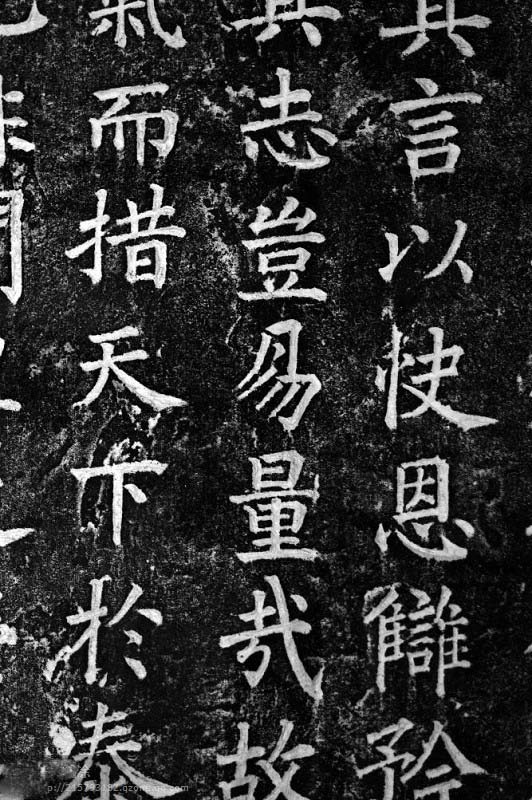 其言以快恩讎矜
其志豈易量哉故
氣而措天下於泰